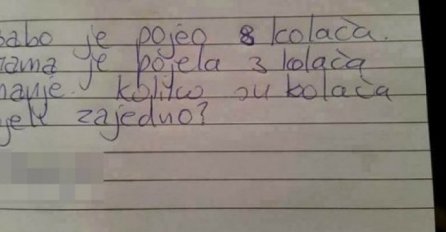 babo je pojeo 8 kolača.
mama je pojela 3 kolača
manje. Koliko su kolača
jeli zajedno?